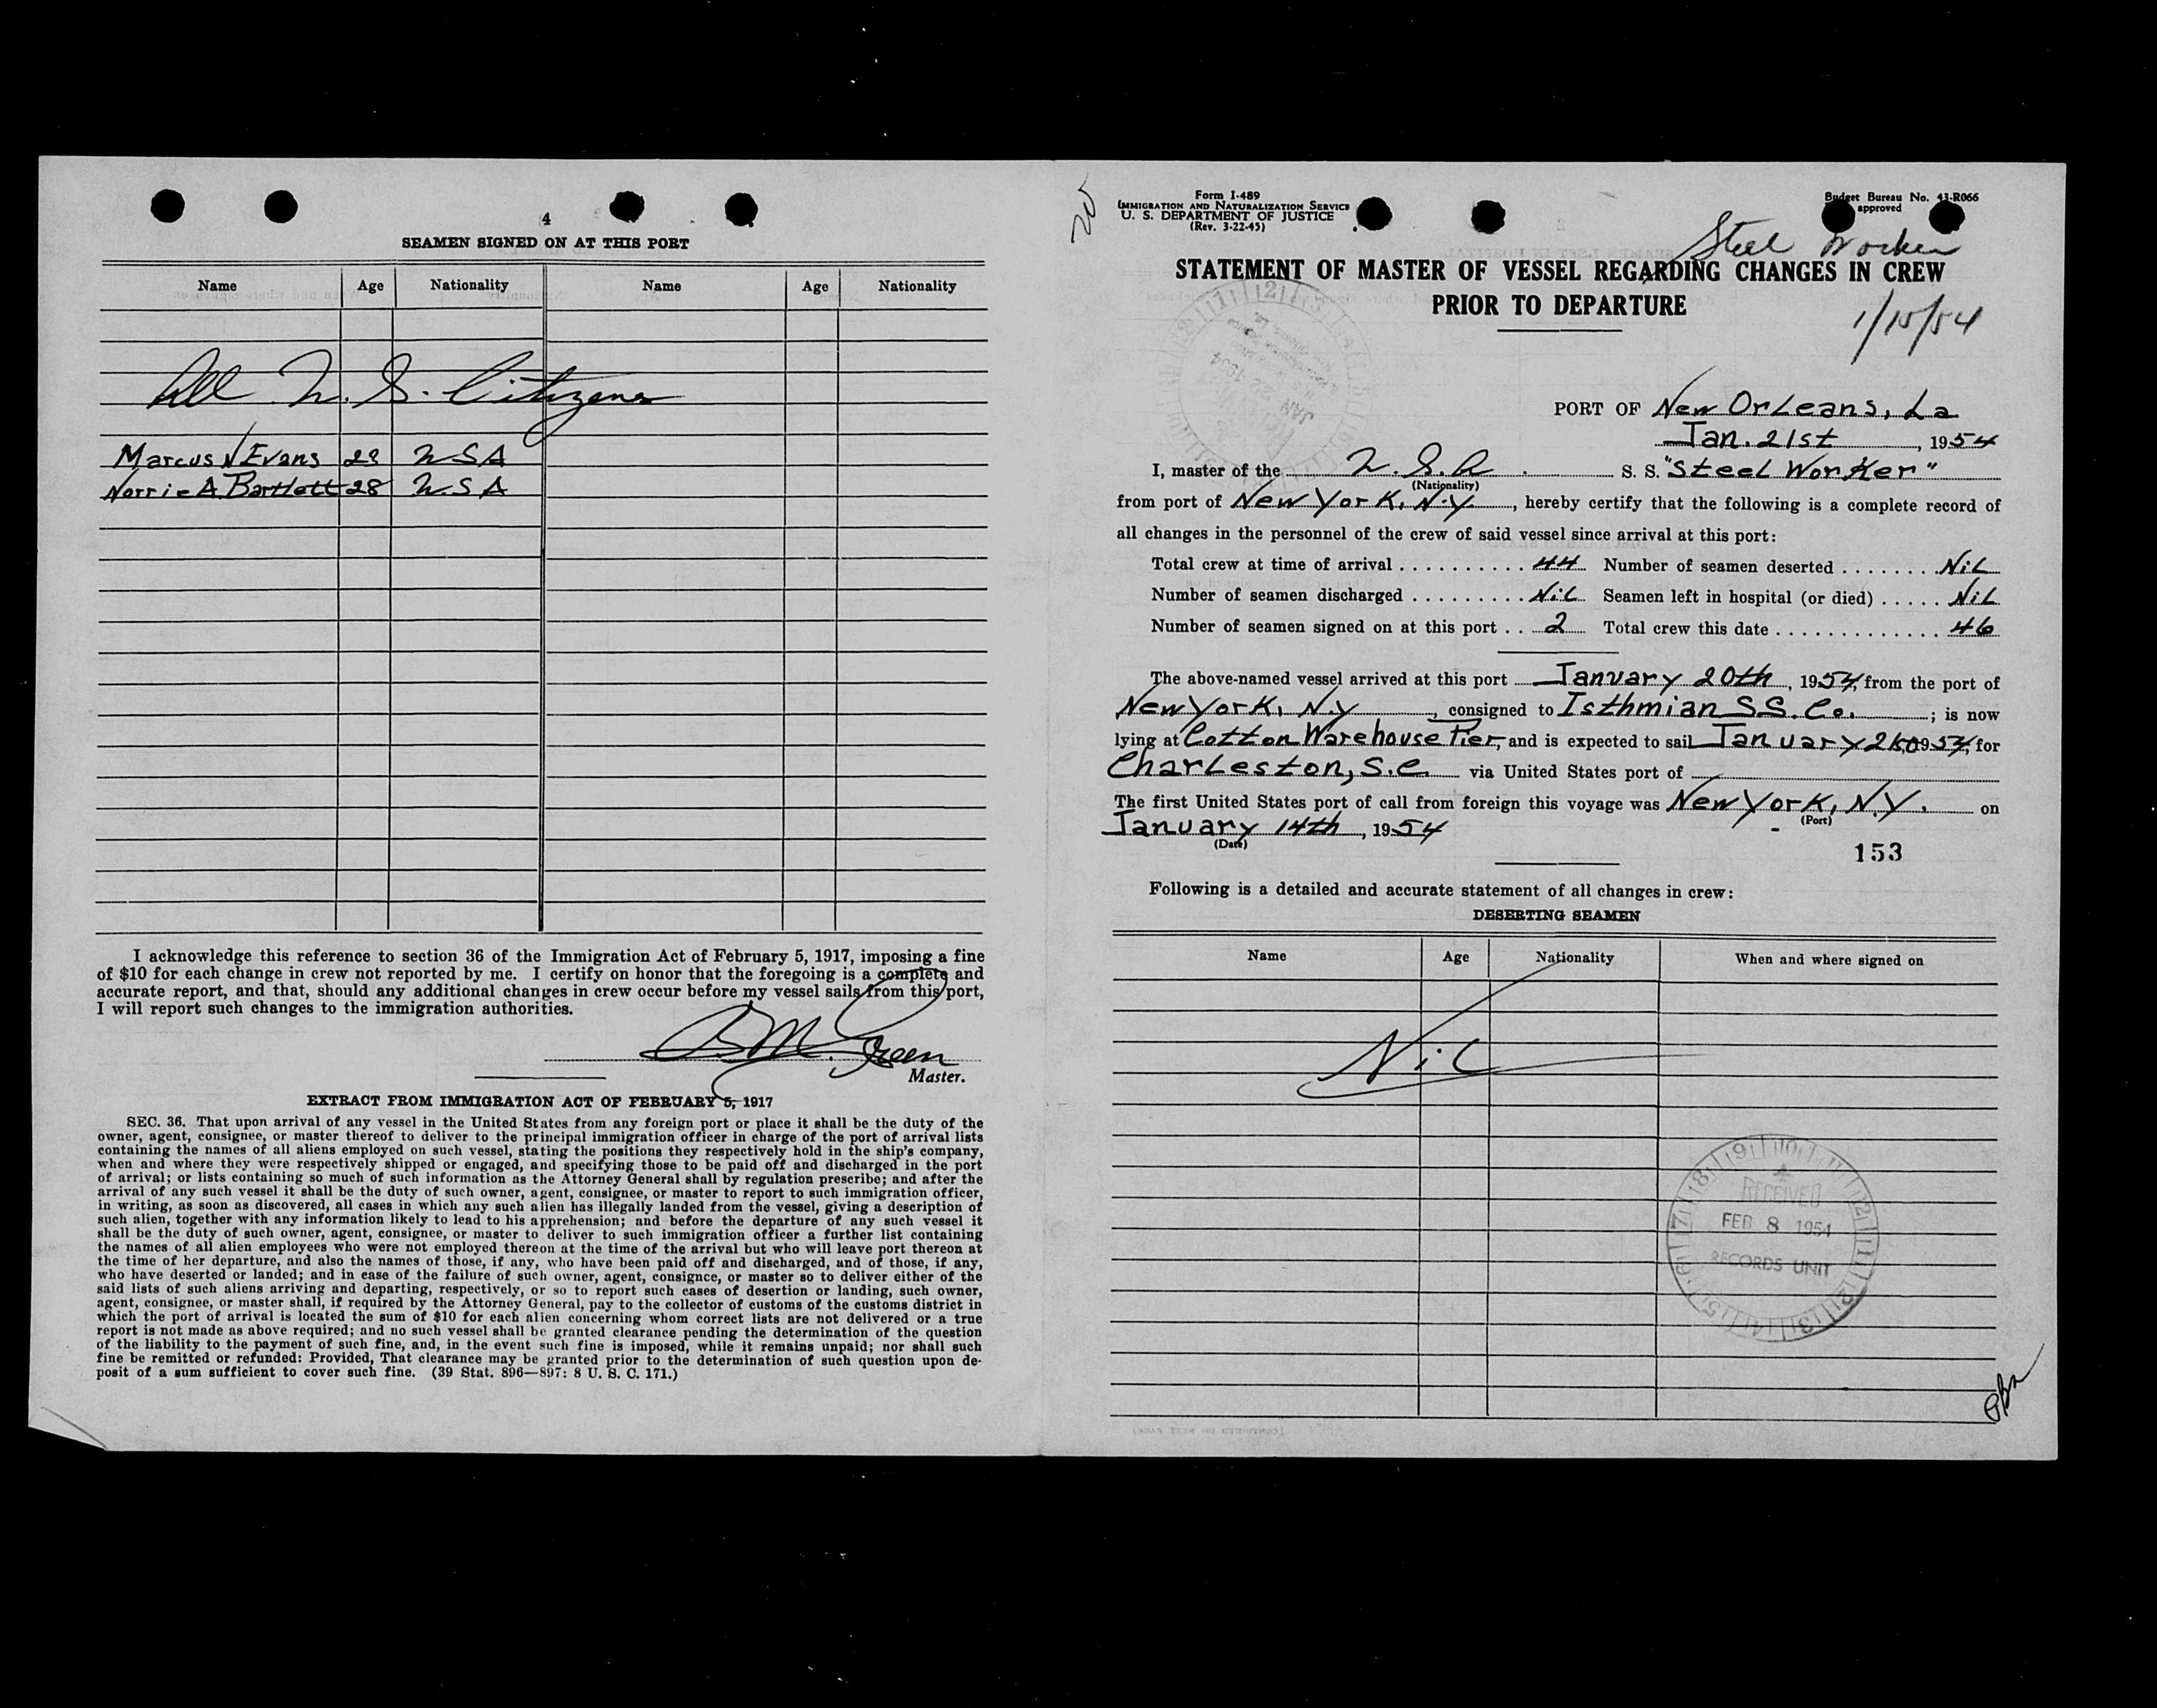 4
SEAMEN SIGNED ON AT THIS PORT
Name Age Nationality Name Age Nationality
All U. S. Citizens
Marcus V Evans 28 USA
Norrie A Bartlett 28 U.S A
I acknowledge this reference to section 36 of the Immigration Act of February 5, 1917, imposing a fine
of $10 for each change in crew not reported by me. I certify on honor that the foregoing is a complete and
accurate report, and that, should any additional changes in crew occur before my vessel sails from this port,
I will report such changes to the immigration authorities.
Green
Master.
EXTRACT FROM IMMIGRATION ACT OF FEBRUARY 5, 1917
SEC. 36. That upon arrival of any vessel in the United States from any foreign port or place it shall be the duty of the
owner, agent, consignee, or master thereof to deliver to the principal immigration officer in charge of the port of arrival lists
containing the names of all aliens employed on such vessel, stating the positions they respectively hold in the ship's company,
when and where they were respectively shipped or engaged, and specifying those to be paid off and discharged in the port
of arrival; or lists containing so much of such information as the Attorney General shall by regulation prescribe; and after the
arrival of any such vessel it shall be the duty of such owner, agent, consignee, or master to report to such immigration officer,
in writing, as soon as discovered, all cases in which any such alien has illegally landed from the vessel, giving a description of
such alien, together with any information likely to lead to his apprehension; and before the departure of any such vessel it
shall be the duty of such owner, agent, consignee, or master to deliver to such immigration officer a further list containing
the names of all alien employees who were not employed thereon at the time of the arrival but who will leave port thereon at
the time of her departure, and also the names of those, if any, who have been paid off and discharged, and of those, if any,
who have deserted or landed; and in case of the failure of such owner, agent, consignee, or master so to deliver either of the
said lists of such aliens arriving and departing, respectively, or so to report such cases of desertion or landing, such owner,
agent, consignee, or master shall, if required by the Attorney General, pay to the collector of customs of the customs district in
which the port of arrival is located the sum of $10 for each alien concerning whom correct lists are not delivered or a true
report is not made as above required; and no such vessel shall be granted clearance pending the determination of the question
of the liability to the payment of such fine, and, in the event such fine is imposed, while it remains unpaid; nor shall such
fine be remitted or refunded: Provided, That clearance may be granted prior to the determination of such question upon de-
posit of a sum sufficient to cover such fine. (39 Stat. 896—897: 8 U. S. C. 171.)
20
Form I-489
IMMIGRATION AND NATURALIZATION SERVICE
U. S. DEPARTMENT OF JUSTICE
(Rev. 3-22-45)
Budget Bureau No. 43-R066
approved
Steel Worker
STATEMENT OF MASTER OF VESSEL REGARDING CHANGES IN CREW
PRIOR TO DEPARTURE
1/15/54
JAN 22 1954
PORT OF New Orleans, La
Jan. 21st, 1954
I, master of the U. S. A. S. S. "Steel Worker"
(Nationality)
from port of New York, N.Y., hereby certify that the following is a complete record of
all changes in the personnel of the crew of said vessel since arrival at this port:
Total crew at time of arrival .......... 44 Number of seamen deserted ........ Nil
Number of seamen discharged ......... Nil Seamen left in hospital (or died) ..... Nil
Number of seamen signed on at this port .. 2 Total crew this date ............. 46
The above-named vessel arrived at this port January 20th, 1954, from the port of
New York, N.Y, consigned to Isthmian SS. Co. ; is now
lying at Cotton Warehouse Pier, and is expected to sail January 21, 1954, for
Charleston, S.C. via United States port of
The first United States port of call from foreign this voyage was New York, N.Y. on
(Port)
January 14th, 1954
(Date)
153
Following is a detailed and accurate statement of all changes in crew:
DESERTING SEAMEN
Name Age Nationality When and where signed on
Nil
RECEIVED
FEB 8 1954
RECORDS UNIT